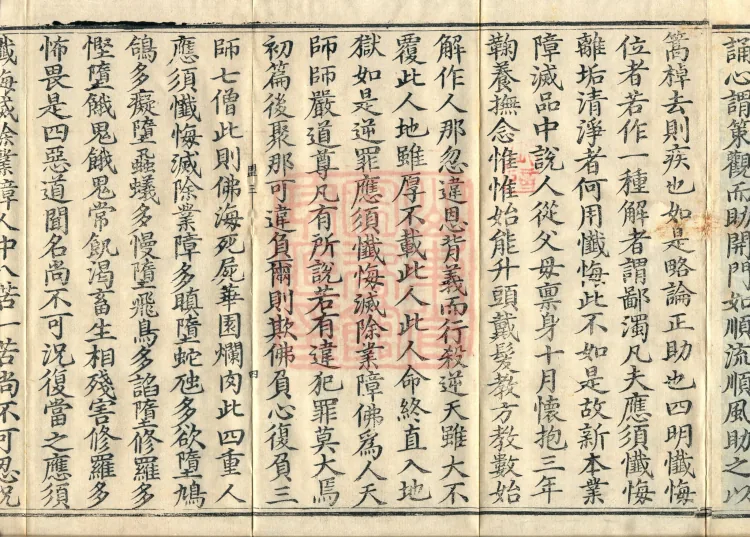 誦心謂策觀而助開門如順流順風助之以
篙棹去則疾也如是略論正助也四明懺悔
位者若作一種解者謂鄙濁凡夫應須懺悔
離垢清淨者何用懺悔此不如是故新本業
障滅品中說人從父毋禀身十月懷抱三年
鞠養撫念惟惟始能升頭戴髮教方教數始
解作人那忽違恩背義而行殺逆天雖大不
覆此人地雖厚不載此人此人命終直入地
獄如是逆罪應須懺悔滅除業障佛爲人天
師師嚴道尊凡有所說若有違犯罪莫大焉
初篇後聚那可違負爾則欺佛負心復負三
師七僧此則佛海死屍華園爛肉此四重人
應須懺悔滅除業障多瞋墮蛇虵多欲墮鳩
鴿多癡墮蝨蟻多慢墮飛鳥多諂墮修羅多
慳墮餓鬼餓鬼常飢渴畜生相殘害修羅多
怖畏是四惡道聞名尚不可況復當之應須
懺悔滅除業障人中八苦一苦尚不可忍況